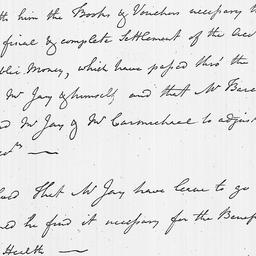 him the Books & Vouchers necessary
final & complete Settlement of the
Money, which have passed thro' the
Mr Jay & himself and that Mr
Mr Jay & Mr Carmichael to adjust
That Mr Jay have leave to go
he find it necessary for the
Health —